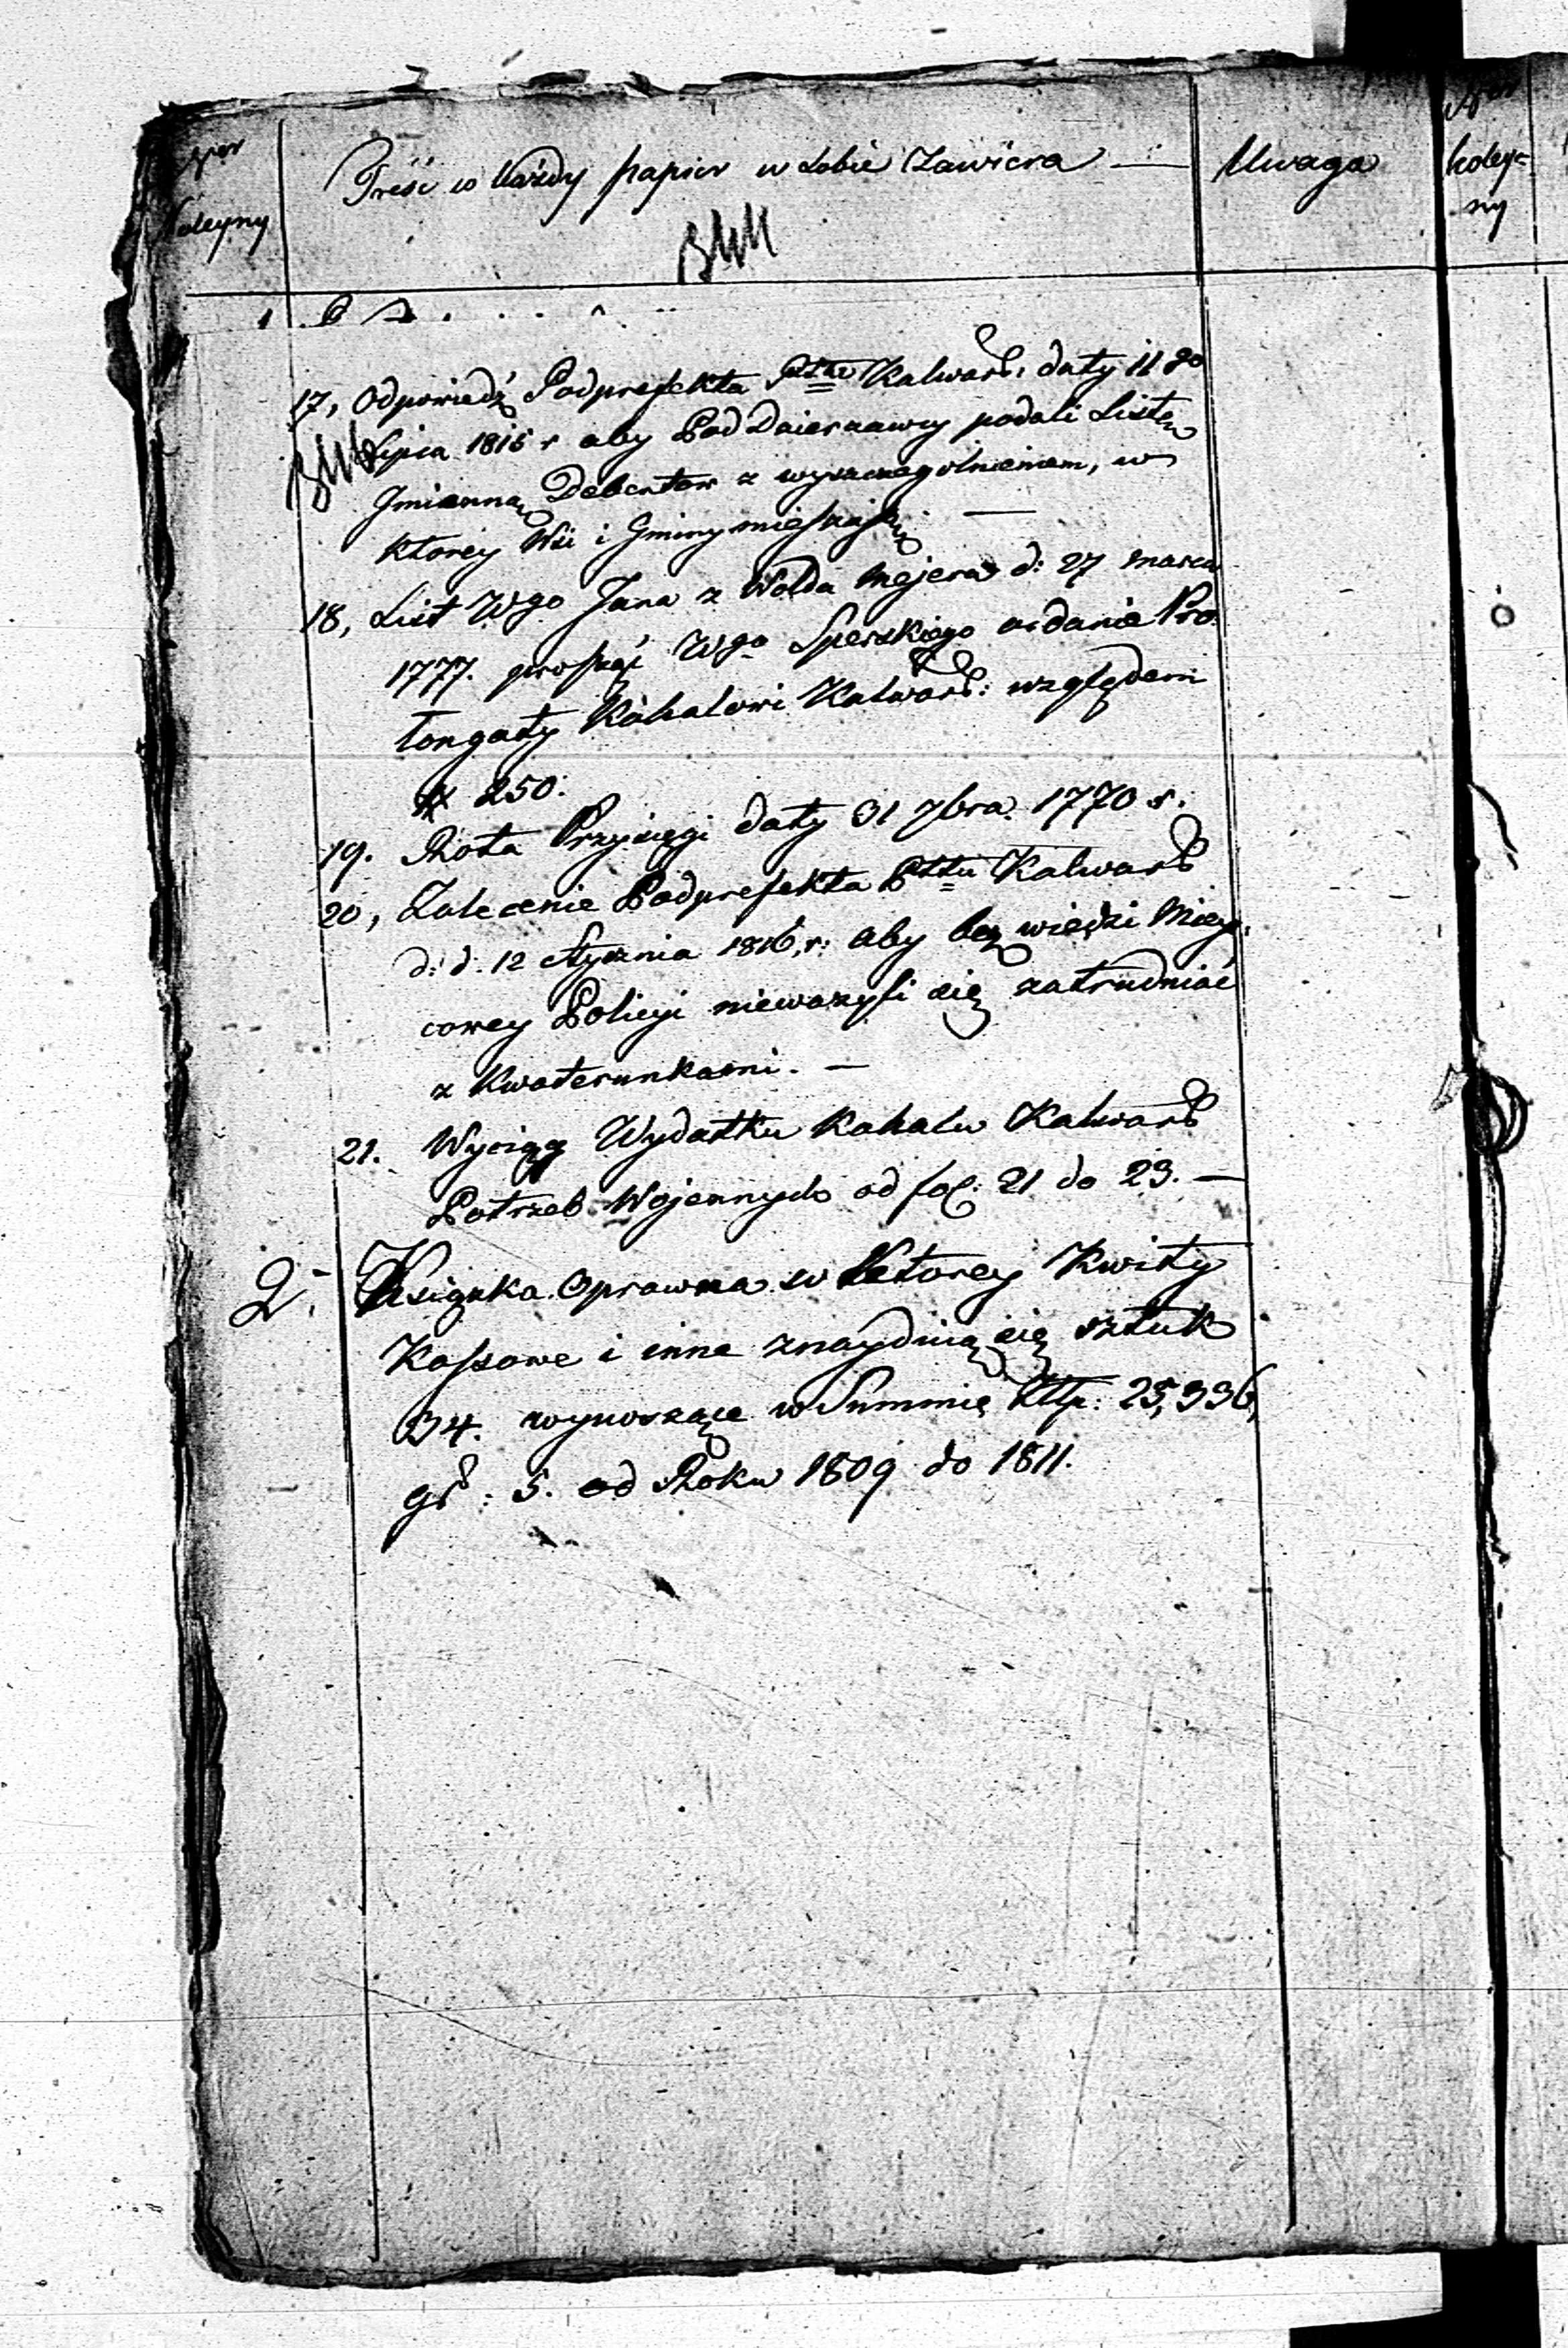 Nor
Koleyny
Treść co każdy papier w Sobie Zawiera —
Uwaga
Nor
koley=
ny
1
17, Odpowiedź Podprefekta Pttu Kalwar: daty 11 go
Lipca 1815 r aby Pod Dzierzawcy podali Listę
Jmienną Debentow z wyszczegolnieniem, w
ktorey Wsi i Gminy mieszkają. —
18, List Wgo Jana z Wolda Mejera d: 27 marca
1777. prosząc Wgo Sperskiego o danie Pro
longaty Kahałowi Kalwar: względem
# 250.
19. Rota Przysięgi daty 31 7bra 1770 r.
20, Zalecenie Podprefekta Pttu Kalwar
d: d. 12 Stycznia 1816, r: aby bez wiedzi Miey
cowey Policyi nieważyli się zatrudniać
z Kwaterunkami. —
21. Wyciąg Wydatku Kahału Kalwar
Potrzeb Wojennych od fol: 21 do 23. —
2. Książka Oprawna w Ktorey Kwity
Kassowe i inne znayduią się sztuk
34. wynoszące w Summie Złtp: 25,336,
gr: 5. od Roku 1809 do 1811.